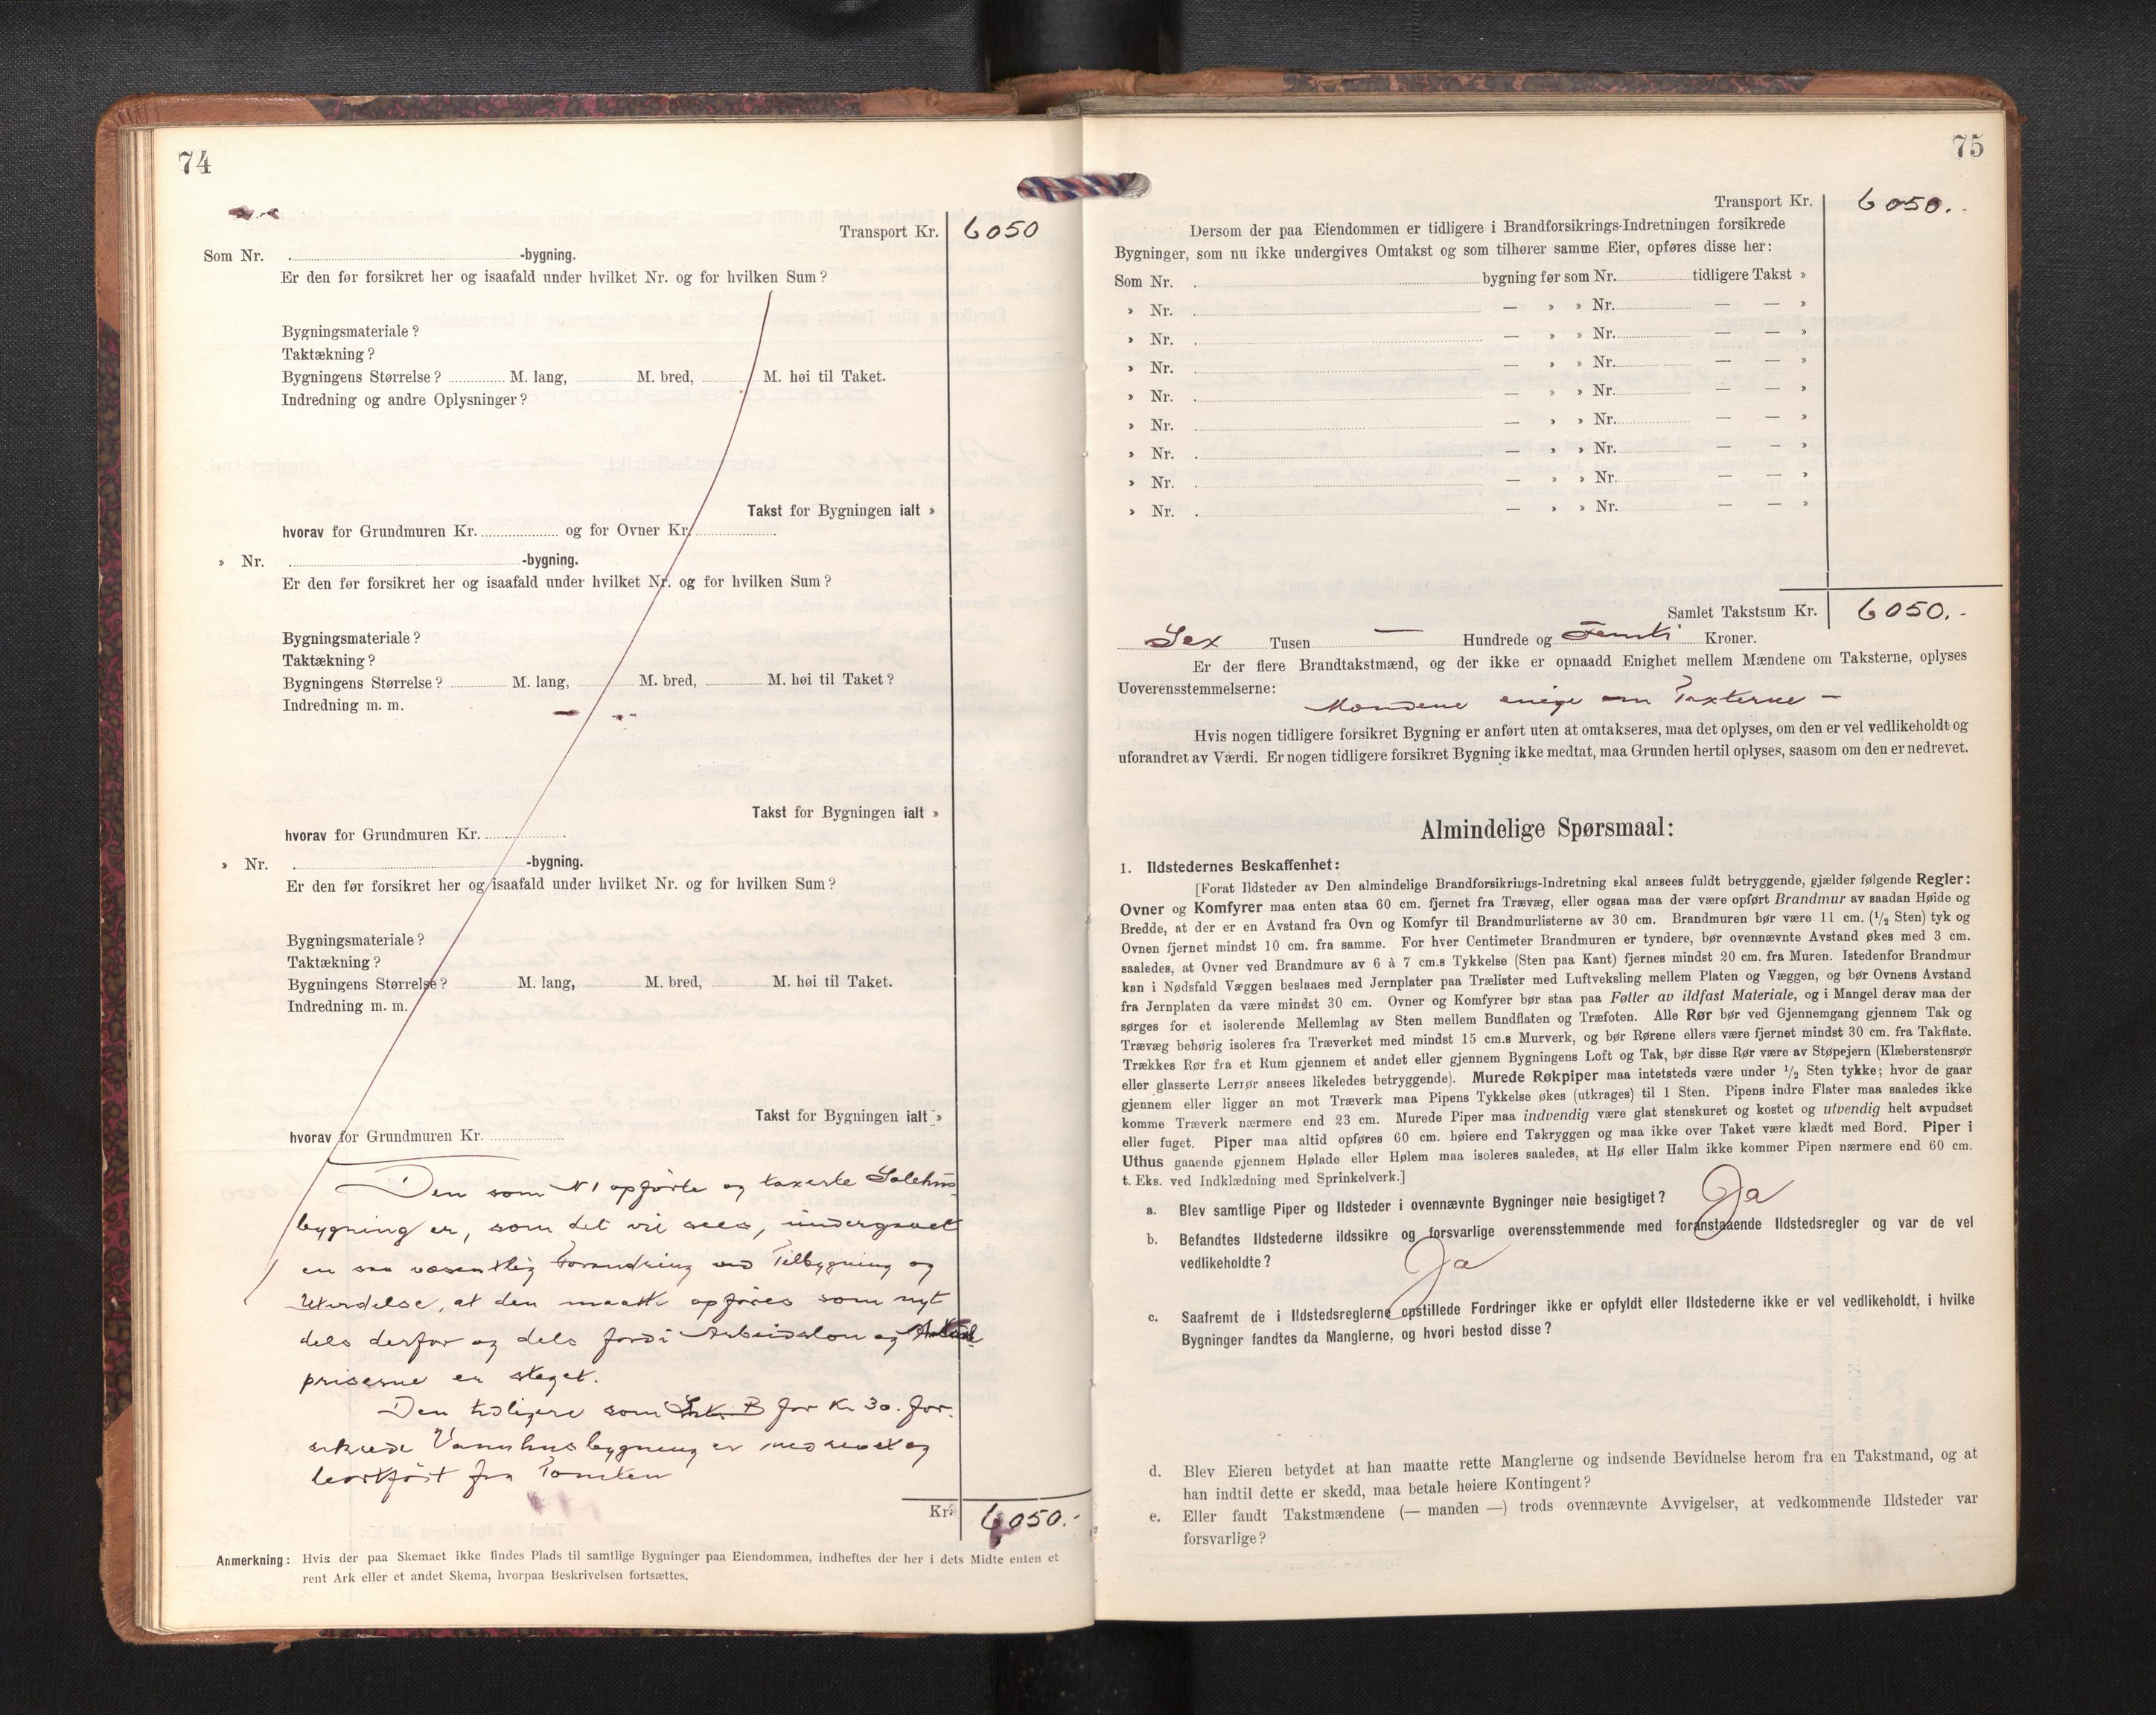 74
Transport Kr. 6050
Som Nr. -bygning.
Er den før forsikret her og isaafald under hvilket Nr. og for hvilken Sum?
Bygningsmateriale?
Taktækning?
Bygningens Størrelse? M. lang, M. bred, M. høi til Taket.
Indredning og andre Oplysninger?
Takst for Bygningen ialt »
hvorav for Grundmuren Kr. og for Ovner Kr.
» Nr. -bygning.
Er den før forsikret her og isaafald under hvilket Nr. og for hvilken Sum?
Bygningsmateriale?
Taktækning?
Bygningens Størrelse? M. lang, M. bred, M. høi til Taket?
Indredning m. m.
Takst for Bygningen ialt »
hvorav for Grundmuren Kr.
» Nr. -bygning.
Er den før forsikret her og isaafald under hvilket Nr. og for hvilken Sum?
Bygningsmateriale?
Taktækning?
Bygningens Størrelse? M. lang, M. bred, M. høi til Taket.
Indredning m. m.
Takst for Bygningen ialt »
hvorav for Grundmuren Kr.
Den som N 1 opførte og taxerte
bygning er, som det vil sees, undergaaet
en saa væsentlig Forandring ved Tilbygning og
Utvidelse, at den maatte opføres som nyt
dels derfor og dels fordi Arbeidsløn og
priserne er steget.
Den tidligere som B for Kr 30. for-
sikrede Vannhusbygning er nedrevet og
bortført fra Tomten
Kr. 6050.-
Anmerkning: Hvis der paa Skemaet ikke findes Plads til samtlige Bygninger paa Eiendommen, indheftes der her i dets Midte enten et
rent Ark eller et andet Skema, hvorpaa Beskrivelsen fortsættes.
75
Transport Kr. 6050.-
Dersom der paa Eiendommen er tidligere i Brandforsikrings-Indretningen forsikrede
Bygninger, som nu ikke undergives Omtakst og som tilhører samme Eier, opføres disse her:
Som Nr. bygning før som Nr. tidligere Takst »
» Nr. — » » Nr. — — »
» Nr. — » » Nr. — — »
» Nr. — » » Nr. — — »
» Nr. — » » Nr. — — »
» Nr. — » » Nr. — — »
» Nr. — » » Nr. — — »
» Nr. — » » Nr. — — »
» Nr. — » » Nr. — — »
Samlet Takstsum Kr. 6050.-
Sex Tusen — Hundrede og Femti Kroner.
Er der flere Brandtakstmænd, og der ikke er opnaadd Enighet mellem Mændene om Taksterne, oplyses
Uoverensstemmelserne:
Mændene enige om Taxterne —
Hvis nogen tidligere forsikret Bygning er anført uten at omtakseres, maa det oplyses, om den er vel vedlikeholdt og
uforandret av Værdi. Er nogen tidligere forsikret Bygning ikke medtat, maa Grunden hertil oplyses, saasom om den er nedrevet.
Almindelige Spørsmaal:
1. Ildstedernes Beskaffenhet:
[Forat Ildsteder av Den almindelige Brandforsikrings-Indretning skal ansees fuldt betryggende, gjælder følgende Regler:
Ovner og Komfyrer maa enten staa 60 cm. fjernet fra Trævæg, eller ogsaa maa der være opført Brandmur av saadan Høide og
Bredde, at der er en Avstand fra Ovn og Komfyr til Brandmurlisterne av 30 cm. Brandmuren bør være 11 cm. (1/2 Sten) tyk og
Ovnen fjernet mindst 10 cm. fra samme. For hver Centimeter Brandmuren er tyndere, bør ovennævnte Avstand økes med 3 cm.
saaledes, at Ovner ved Brandmure av 6 à 7 cm.s Tykkelse (Sten paa Kant) fjernes mindst 20 cm. fra Muren. Istedenfor Brandmur
kan i Nødsfald Væggen beslaaes med Jernplater paa Trælister med Luftveksling mellem Platen og Væggen, og bør Ovnens Avstand
fra Jernplaten da være mindst 30 cm. Ovner og Komfyrer bør staa paa Føtter av ildfast Materiale, og i Mangel derav maa der
sørges for et isolerende Mellemlag av Sten mellem Bundflaten og Træfoten. Alle Rør bør ved Gjennemgang gjennem Tak og
Trævæg behørig isoleres fra Træverket med mindst 15 cm.s Murverk, og bør Rørene ellers være fjernet mindst 30 cm. fra Takflate.
Trækkes Rør fra et Rum gjennem et andet eller gjennem Bygningens Loft og Tak, bør disse Rør være av Støpejern (Klæberstensrør
eller glasserte Lerrør ansees likeledes betryggende). Murede Røkpiper maa intetsteds være under 1/2 Sten tykke; hvor de gaar
gjennem eller ligger an mot Træverk maa Pipens Tykkelse økes (utkrages) til 1 Sten. Pipens indre Flater maa saaledes ikke
komme Træverk nærmere end 23 cm. Murede Piper maa indvendig være glat stenskuret og kostet og utvendig helt avpudset
eller fuget. Piper maa altid opføres 60 cm. høiere end Takryggen og maa ikke over Taket være klædt med Bord. Piper i
Uthus gaaende gjennem Hølade eller Hølem maa isoleres saaledes, at Hø eller Halm ikke kommer Pipen nærmere end 60 cm.
t. Eks. ved Indklædning med Sprinkelverk.]
a. Blev samtlige Piper og Ildsteder i ovennævnte Bygninger nøie besigtiget? Ja
b. Befandtes Ildstederne ildssikre og forsvarlige overensstemmende med foranstaaende Ildstedsregler og var de vel
vedlikeholdte? Ja
c. Saafremt de i Ildstedsreglerne opstillede Fordringer ikke er opfyldt eller Ildstederne ikke er vel vedlikeholdt, i hvilke
Bygninger fandtes da Manglerne, og hvori bestod disse?
d. Blev Eieren betydet at han maatte rette Manglerne og indsende Bevidnelse herom fra en Takstmand, og at
han indtil dette er skedd, maa betale høiere Kontingent?
e. Eller fandt Takstmændene (— manden —) trods ovennævnte Avvigelser, at vedkommende Ildsteder var
forsvarlige?